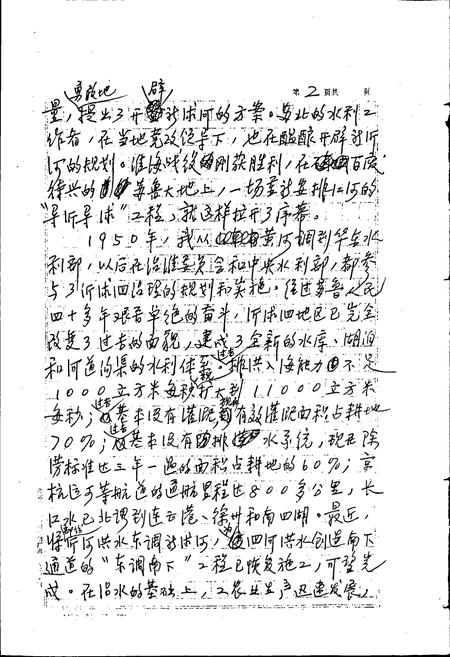 勇敢地 辟 第2页共 页
量,提出了开新沭河的方案。苏北的水利工
作者,在当地党政领导下,也在酝酿开辟新沂
河的规划。淮海战役刚获胜利,在百废
待兴的苏鲁大地上,一场重新安排江河的
“导沂导沭”工程,就这样拉开了序幕。
1950年,我从黄河调到华东水
利部,以后在治淮委员会和中央水利部,都参
与了沂沭泗治理的规划和实施。经过苏鲁人民
四十多年艰苦卓绝的奋斗,沂沭泗地区已完全
改变了过去的面貌,建成了全新的水库、湖泊
和河道沟渠的水利体系。排洪入海能力过去不足
1000立方米每秒,现扩大到11000立方米
每秒;过去基本没有灌溉,现有有效灌溉面积占耕地
70%;过去基本没有排水系统,现在除
涝标准达三年一遇的面积占耕地的60%;京
杭运河等航道的通航里程达800多公里,长
江水已北调到连云港、徐州和南四湖。最近,
将沂河洪水东调新沭河,为泗河洪水创造南下
通道的“东调南下”工程已恢复施工,可望完
成。在治水的基础上,工农业生产迅速发展,